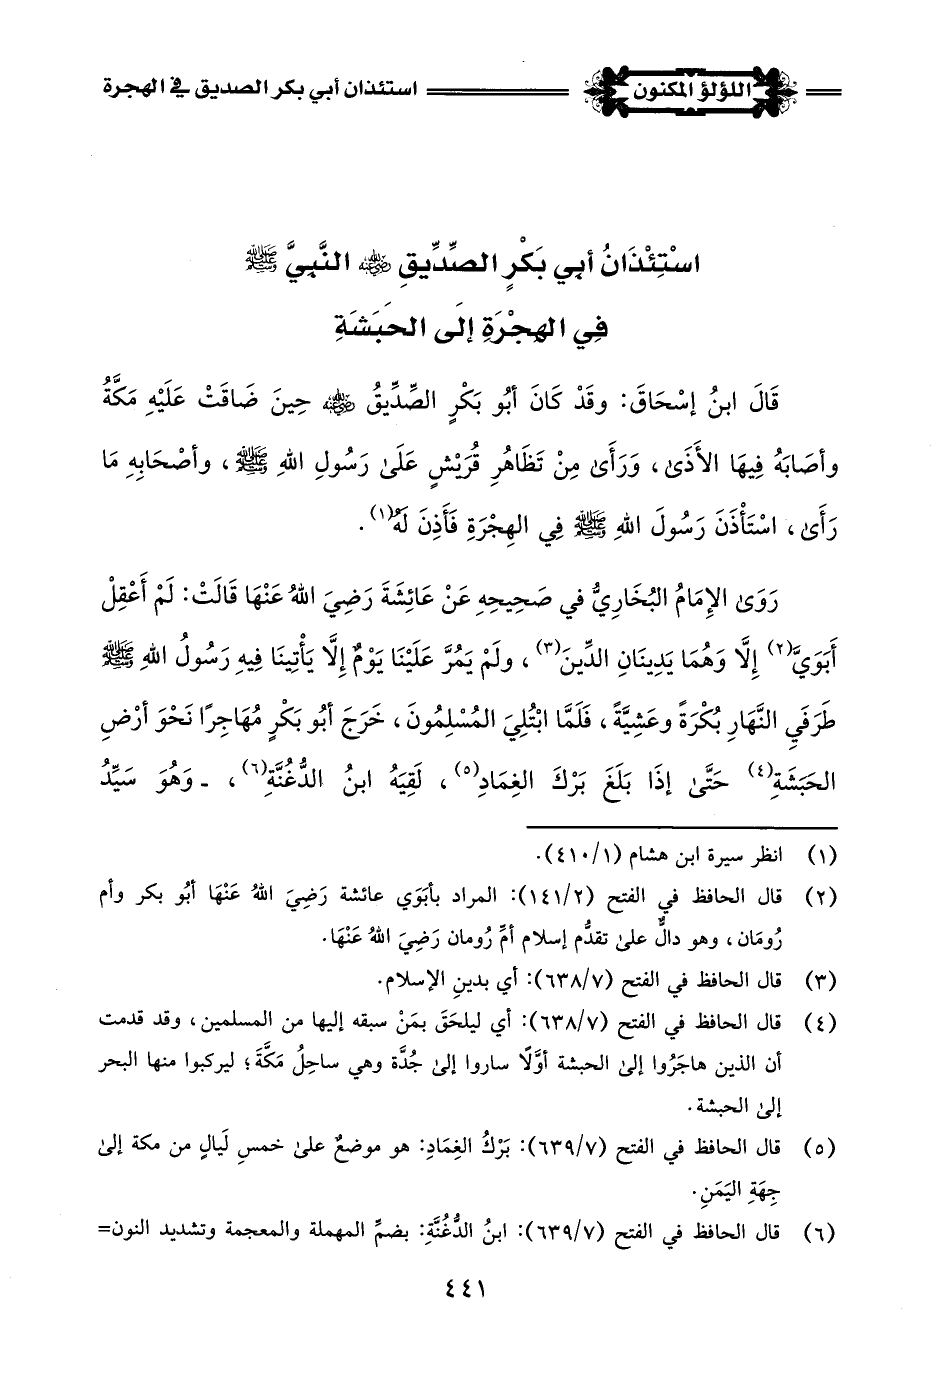 اللؤلؤ المكنون استئذان أبي بكر الصديق في الهجرة
اسْتِئْذَانُ أبي بَكْرٍ الصِّدِّيقِ ﵁ النَّبِيَّ ﷺ
فِي الهِجْرَةِ إلَى الحَبَشَةِ
قَالَ ابنُ إسْحَاقَ: وقَدْ كَانَ أبُو بَكْرٍ الصِّدِّيقُ ﵁ حِينَ ضَاقَتْ عَلَيْهِ مَكَّةُ
وأصَابَهُ فِيهَا الأَذَىٰ، وَرَأَىٰ مِنْ تَظَاهُرِ قُرَيْشٍ عَلَىٰ رَسُولِ اللهِ ﷺ، وأصْحَابِهِ مَا
رَأَىٰ، اسْتَأْذَنَ رَسُولَ اللهِ ﷺ فِي الهِجْرَةِ فَأَذِنَ لَهُ(١).
رَوَىٰ الإمَامُ البُخَارِيُّ في صَحِيحِهِ عَنْ عَائِشَةَ رَضِيَ اللهُ عَنْهَا قَالَتْ: لَمْ أَعْقِلْ
أَبَوَيَّ(٢) إلَّا وَهُمَا يَدِينَانِ الدِّينَ(٣)، ولَمْ يَمُرَّ عَلَيْنَا يَوْمٌ إلَّا يَأْتِينَا فِيهِ رَسُولُ اللهِ ﷺ
طَرَفَيِ النَّهَارِ بُكْرَةً وعَشِيَّةً، فَلَمَّا ابْتُلِيَ المُسْلِمُونَ، خَرَجَ أبُو بَكْرٍ مُهَاجِرًا نَحْوَ أرْضِ
الحَبَشَةِ(٤) حَتَّىٰ إذَا بَلَغَ بَرْكَ الغِمَادِ(٥)، لَقِيَهُ ابنُ الدُّغُنَّةِ(٦)، ـ وَهُوَ سَيِّدُ
(١) انظر سيرة ابن هشام (٤١٠/١).
(٢) قال الحافظ في الفتح (١٤١/٢): المراد بأبَوَي عائشة رَضِيَ اللهُ عَنْهَا أبُو بكر وأم
رُومَان، وهو دالٌّ علىٰ تقدُّم إسلام أمِّ رُومان رَضِيَ اللهُ عَنْهَا.
(٣) قال الحافظ في الفتح (٦٣٨/٧): أي بدينِ الإسلام.
(٤) قال الحافظ في الفتح (٦٣٨/٧): أي ليلحَقَ بمَنْ سبقه إليها من المسلمين، وقد قدمت
أن الذين هاجَرُوا إلىٰ الحبشة أوَّلًا ساروا إلىٰ جُدَّة وهي ساحِلُ مَكَّةَ؛ ليركبوا منها البحر
إلىٰ الحبشة.
(٥) قال الحافظ في الفتح (٦٣٩/٧): بَرْكُ الغِمَادِ: هو موضعٌ علىٰ خمسِ لَيالٍ من مكة إلىٰ
جِهَةِ اليَمَنِ.
(٦) قال الحافظ في الفتح (٦٣٩/٧): ابنُ الدُّغُنَّةِ: بضمِّ المهملة والمعجمة وتشديد النون=
٤٤١